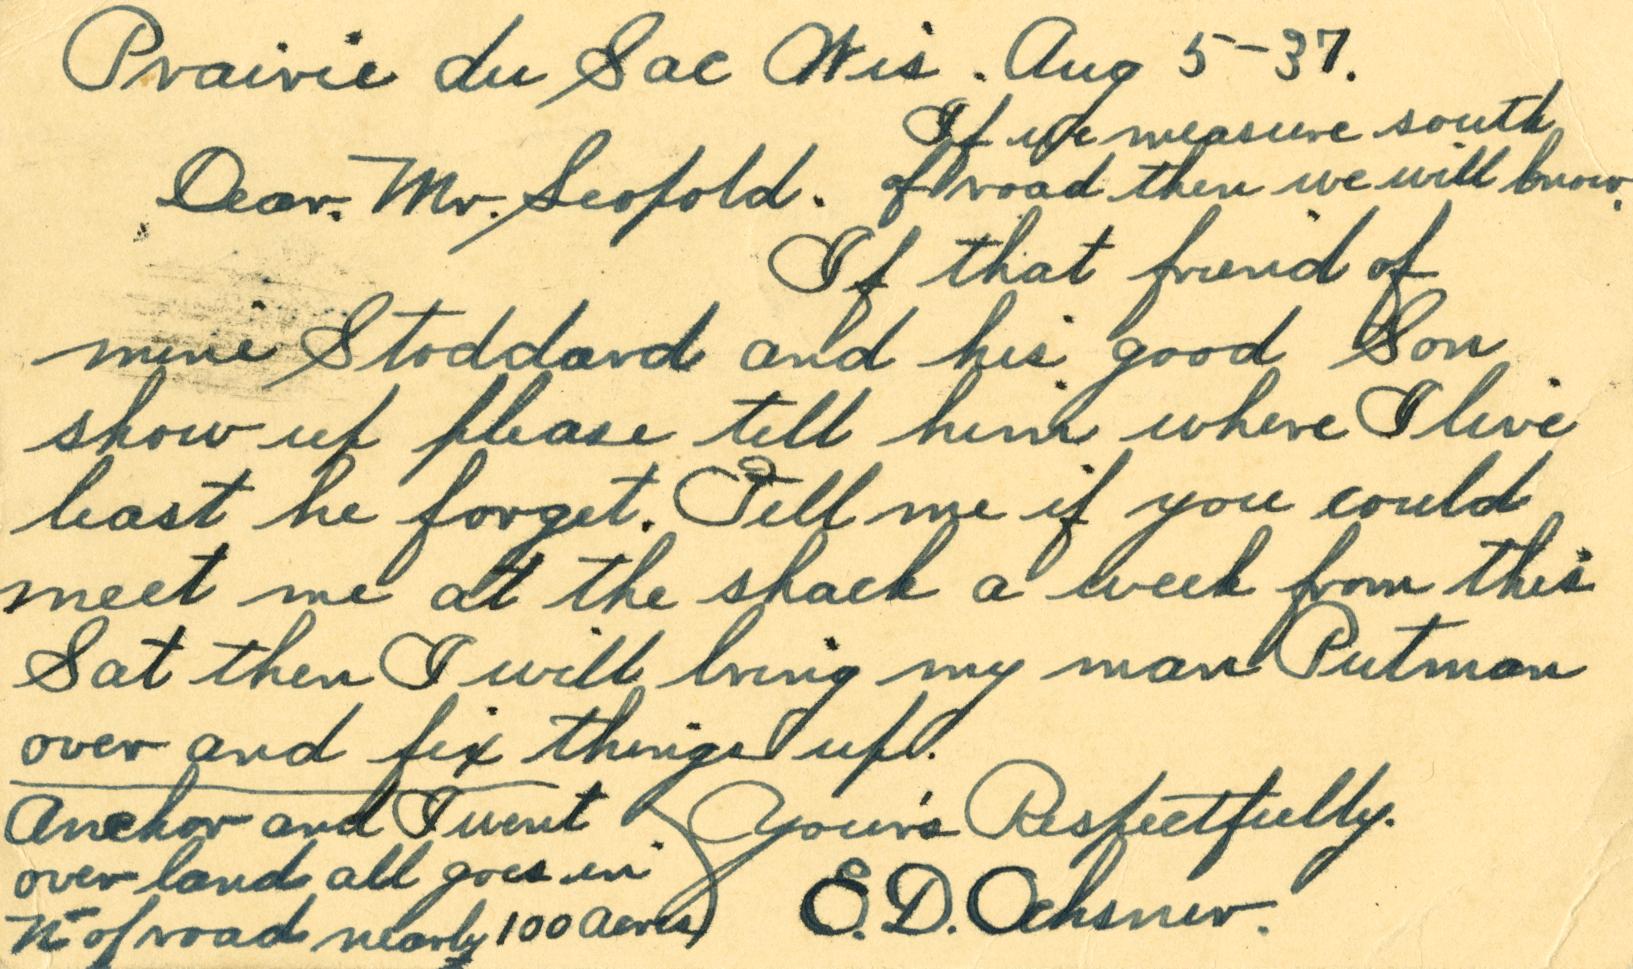 Prairie du Sac Wis. Aug 5-37.
If we measure south
of road then we will know.
Dear. Mr. Leopold.
If that friend of
mine Stoddard and his good Son
show up please tell him where I live
least he forget. Tell me if you could
meet me at the shack a week from this
Sat then I will bring my man Putman
over and fix things up.
Yours Respectfully.
E. D. Ochsner.
Anchor and I went
over land all goes in
N of road nearly 100 Acres